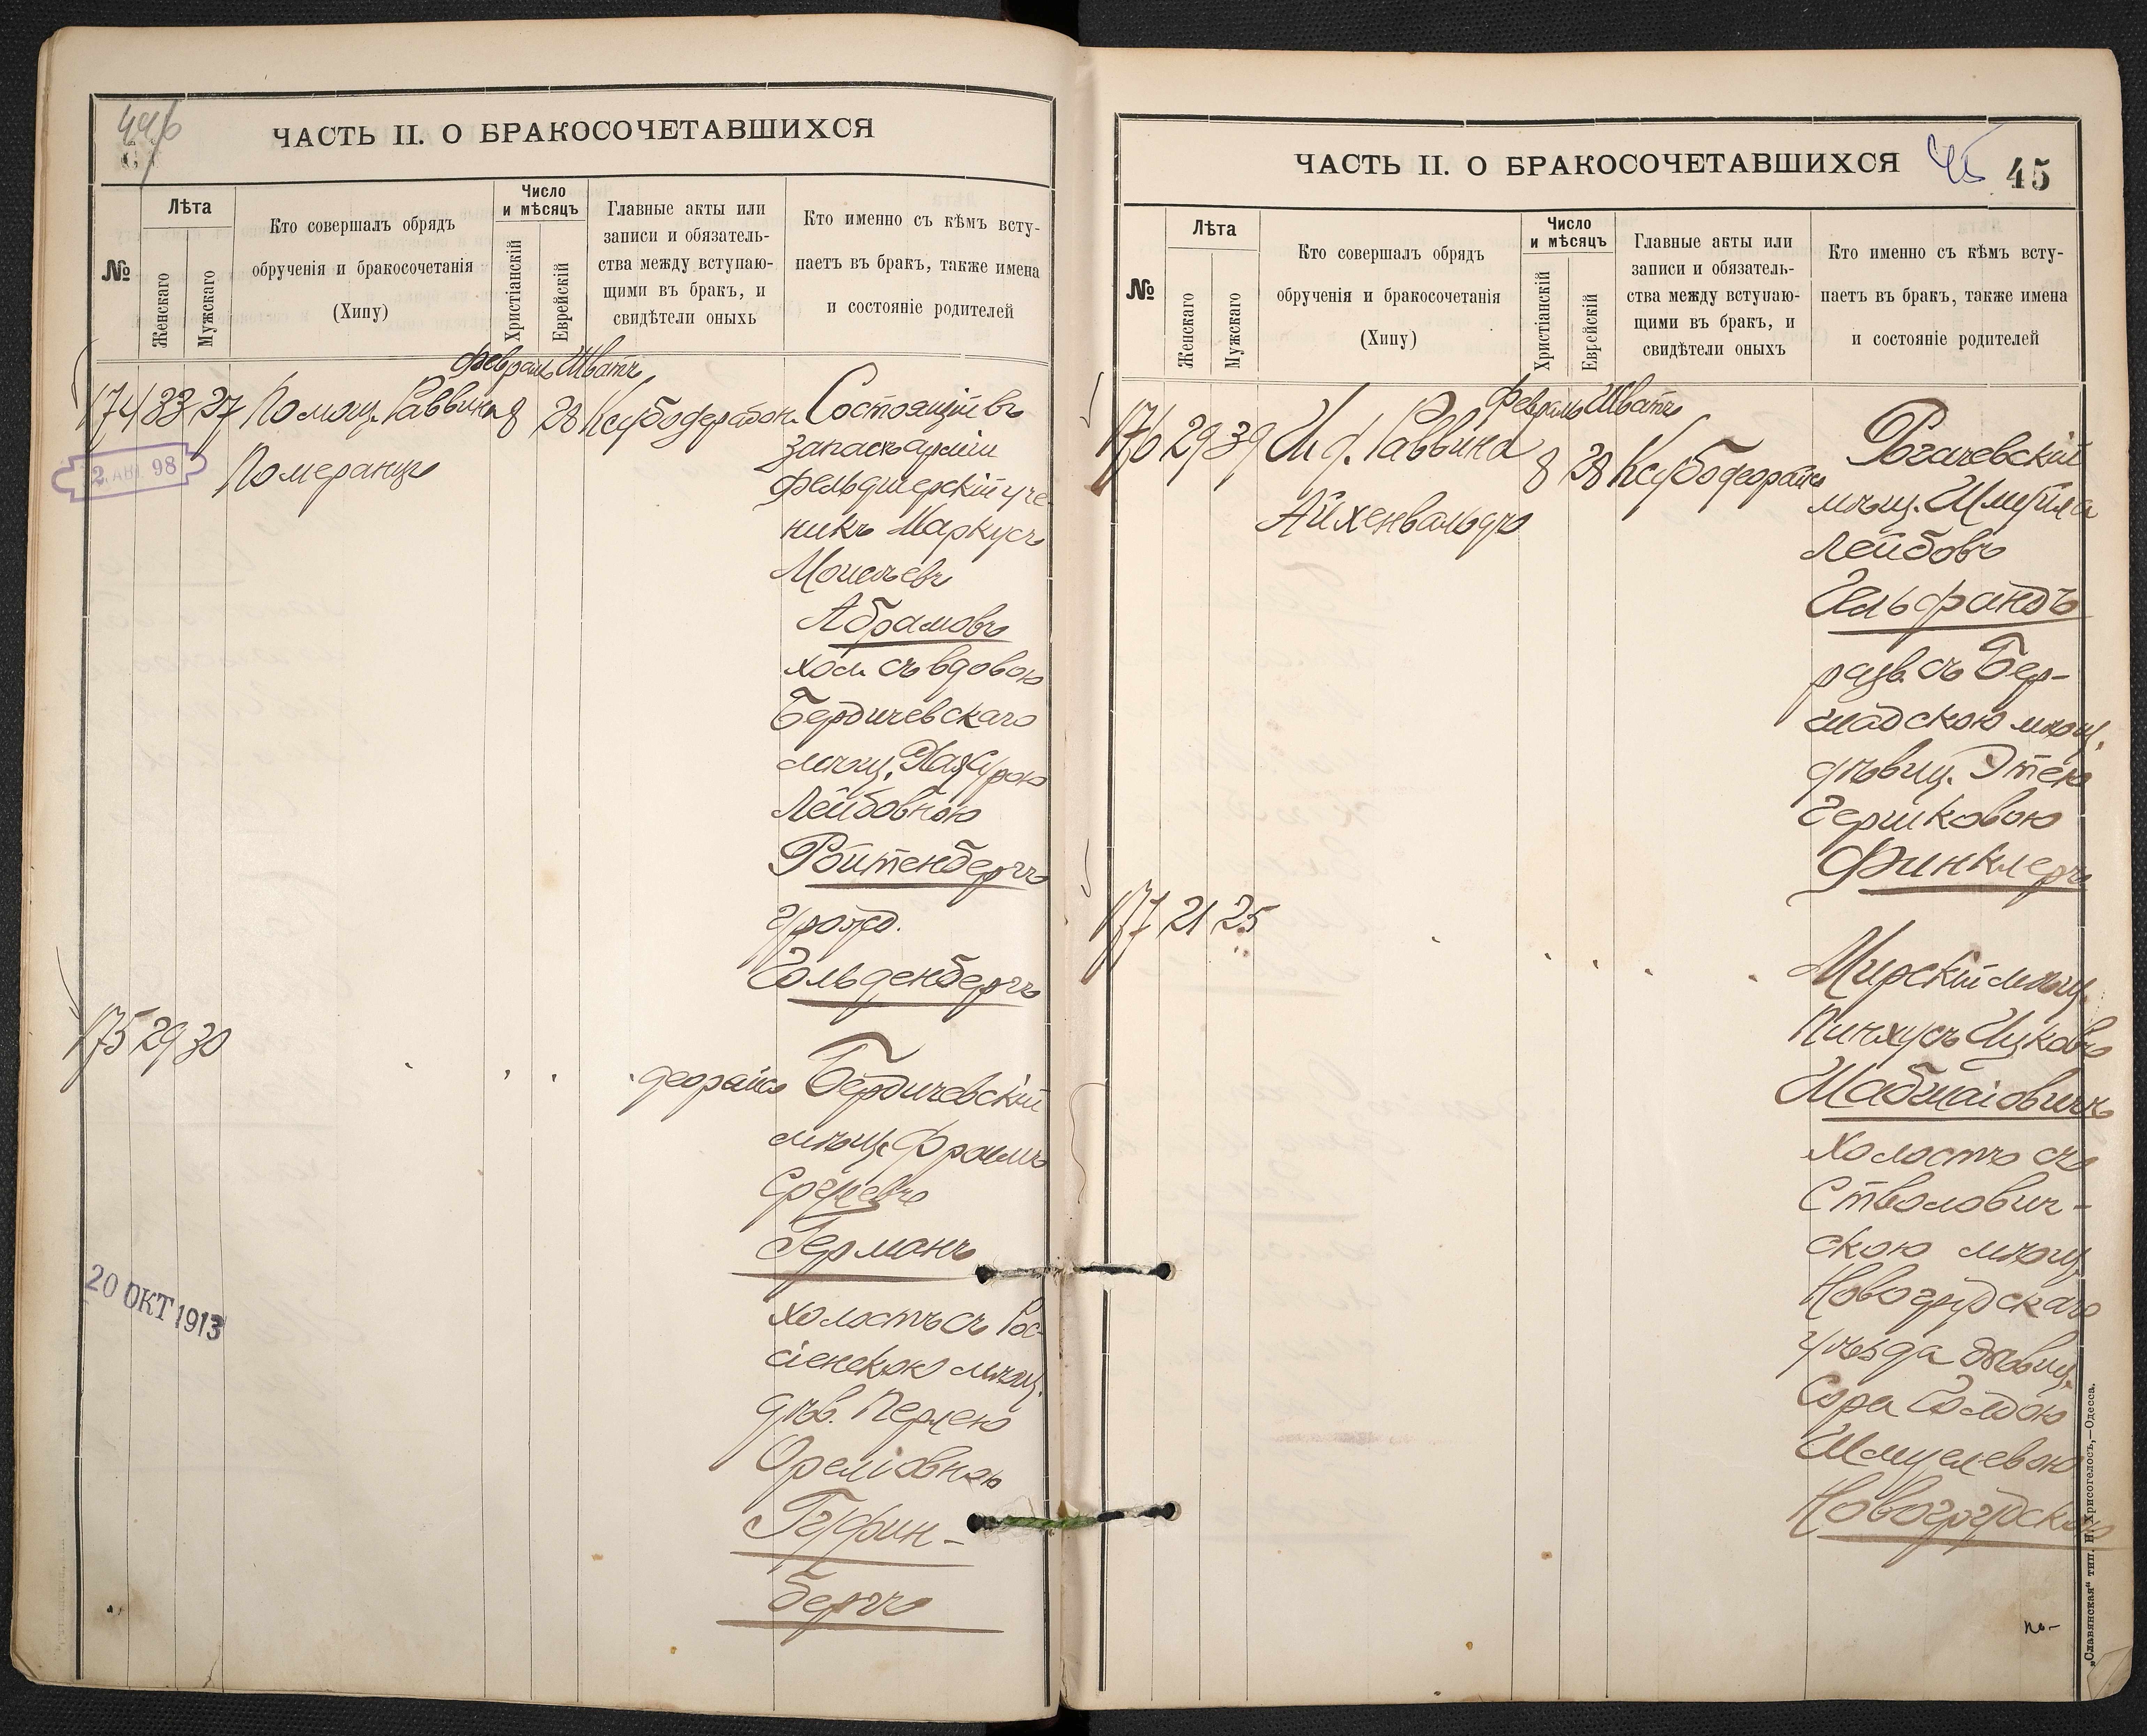 446
ЧАСТЬ II. О БРАКОСОЧЕТАВШИХСЯ
№
Лѣта
Женскаго
Мужскаго
Кто совершалъ обрядъ
обрученія и бракосочетанія
(Хипу)
Число
и мѣсяцъ
Христіанскій
Еврейскій
Главные акты или
записи и обязатель-
ства между вступаю-
щими въ бракъ, и
свидѣтели оныхъ
Кто именно съ кѣмъ всту-
паетъ въ бракъ, также имена
и состояніе родителей
Февраль Шватъ
174 33 27 Помощ. Раввина 8 28 Ксубо деорайсо Состоящій въ
запасѣ арміи
фельдшерскій уче
никъ Маркусъ
Абрамовъ
хол. съ вдовою
Бердичевскаго
мѣщ.
Лейбовною
Ройтенбергъ
урожд.
Гольденбергъ
2 АВГ. 98
Померанцъ
175 29 30 деорайсо Бердичевскій
мѣщ. Фроимъ
Срулевъ
Германъ
холостъ съ Рос-
сіенскою мѣщ.
дѣв. Перлею
Ореліовною
Грин-
бергъ
20 ОКТ 1913
ЧАСТЬ II. О БРАКОСОЧЕТАВШИХСЯ
45 45
№
Лѣта
Женскаго
Мужскаго
Кто совершалъ обрядъ
обрученія и бракосочетанія
(Хипу)
Число
и мѣсяцъ
Христіанскій
Еврейскій
Главные акты или
записи и обязатель-
ства между вступаю-
щими въ бракъ, и
свидѣтели оныхъ
Кто именно съ кѣмъ всту-
паетъ въ бракъ, также имена
и состояніе родителей
Февраль Шватъ
176 29 39 И. д. Раввина 8 28 Ксубо деорайсо Рогачевскій
Айхенвальдъ
мѣщ. Шмуйла
Лейбовъ
Гельфандъ
разв. съ Бер-
шадскою мѣщ.
дѣвиц. Этею
Гершковою
Финклеръ
177 21 25
Мирскій мѣщ.
Пинхусъ Ицковъ
Шабшаіовичъ
холостъ съ
Стволович-
скою мѣщ.
Новогрудскаго
уѣзда дѣвиц.
Сора Голдою
Шмулевою
Новогрудскою
„Славянская“ тип. Н. Хрисогелосъ,—Одесса.